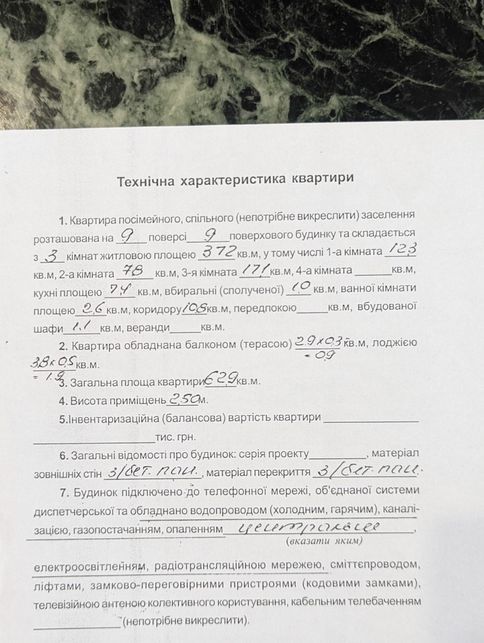 Технічна характеристика квартири
1. Квартира посімейного, спільного (непотрібне викреслити) заселення
розташована на 9 поверсі 9 поверхового будинку та складається
з 3 кімнат житловою площею 37,2 кв.м, у тому числі 1-а кімната 12,3
кв.м, 2-а кімната 7,8 кв.м, 3-я кімната 17,1 кв.м, 4-а кімната ______ кв.м,
кухні площею 7,4 кв.м, вбиральні (сполученої) 1,0 кв.м, ванної кімнати
площею 2,6 кв.м, коридору 10,8 кв.м, передпокою _____ кв.м, вбудованої
шафи 1,1 кв.м, веранди _____ кв.м.
2. Квартира обладнана балконом (терасою) 2,9 х 0,3 кв.м, лоджією
= 0,9
3,8 х 0,5 кв.м.
= 1,9
3. Загальна площа квартири 62,9 кв.м.
4. Висота приміщень 2,50 м.
5.Інвентаризаційна (балансова) вартість квартири ______________
__________________ тис. грн.
6. Загальні відомості про будинок: серія проекту ________, матеріал
зовнішніх стін з/бет. пан., матеріал перекриття з/бет. пан.
7. Будинок підключено до телефонної мережі, об'єднаної системи
диспетчерської та обладнано водопроводом (холодним, гарячим), каналі-
зацією, газопостачанням, опаленням центральне,
(вказати яким)
електроосвітленням, радіотрансляційною мережею, сміттєпроводом,
ліфтами, замково-переговірними пристроями (кодовими замками),
телевізійною антеною колективного користування, кабельним телебаченням
_____________ (непотрібне викреслити).